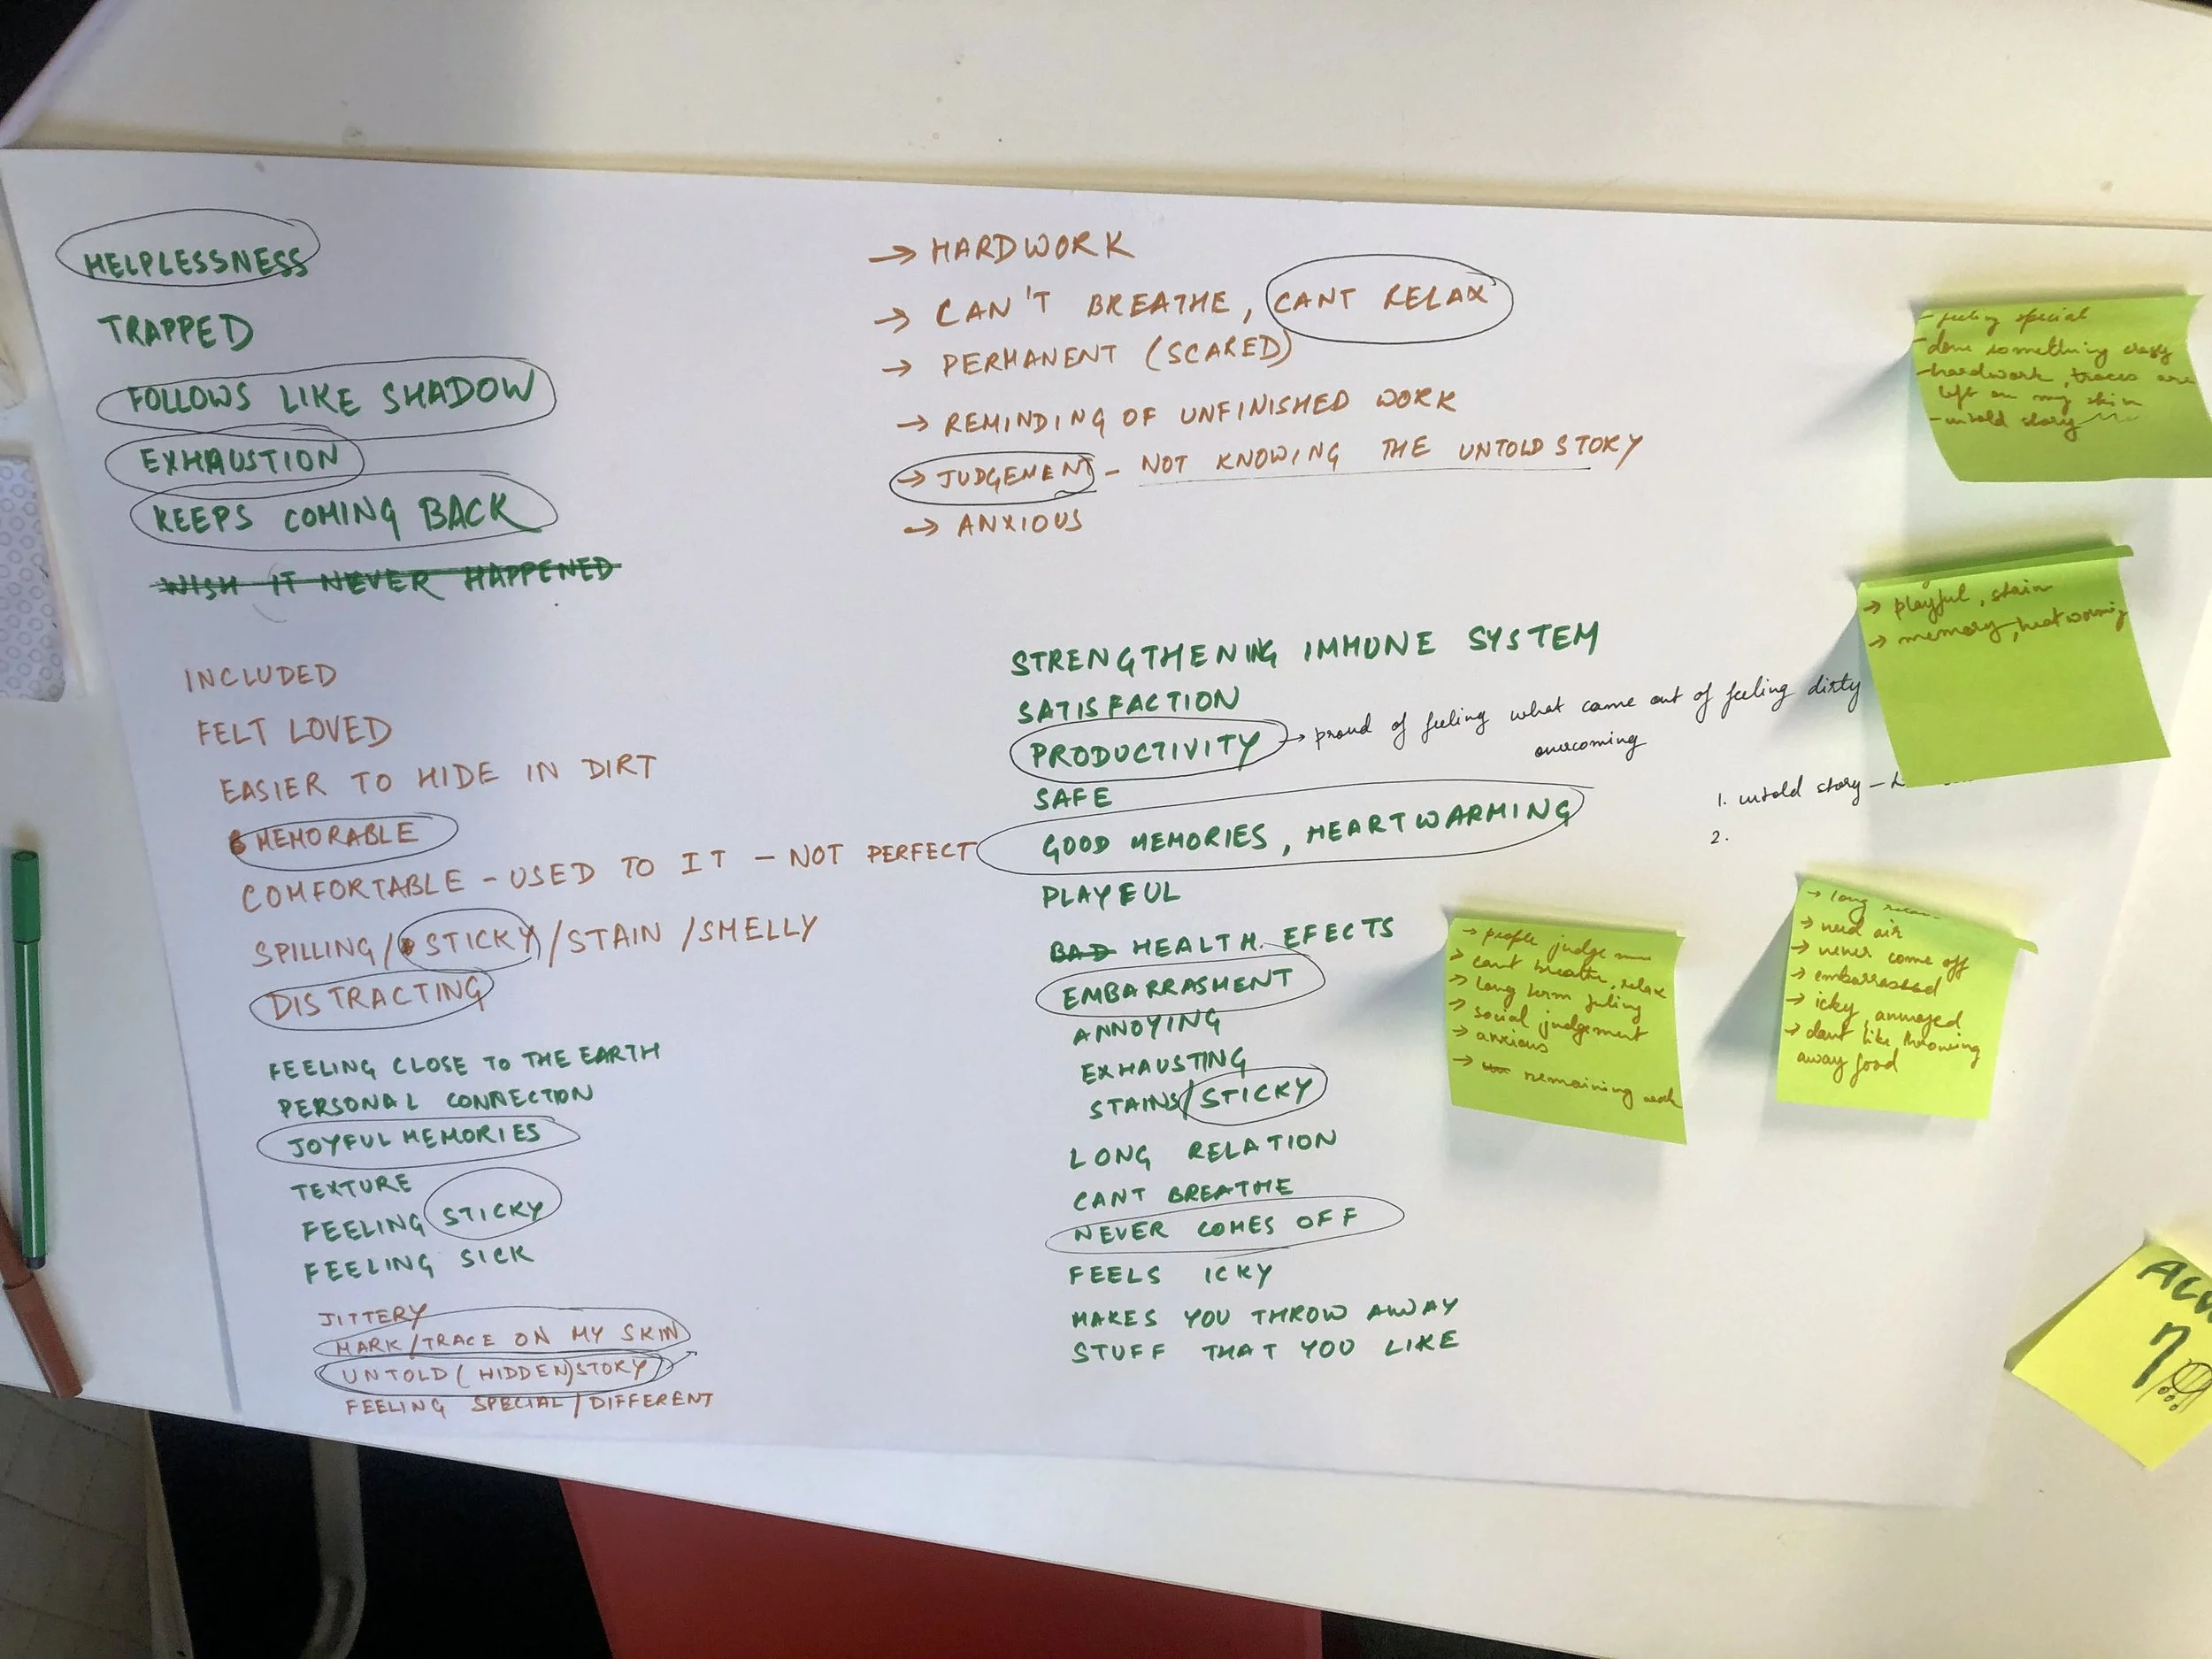 HELPLESSNESS
TRAPPED
FOLLOWS LIKE SHADOW
EXHAUSTION
KEEPS COMING BACK
WISH IT NEVER HAPPENED
→ HARDWORK
→ CAN'T BREATHE, CANT RELAX
→ PERMANENT (SCARED)
→ REMINDING OF UNFINISHED WORK
→ JUDGEMENT - NOT KNOWING THE UNTOLD STORY
→ ANXIOUS
INCLUDED
FELT LOVED
EASIER TO HIDE IN DIRT
MEMORABLE
COMFORTABLE - USED TO IT - NOT PERFECT
SPILLING/STICKY/STAIN/SMELLY
DISTRACTING
FEELING CLOSE TO THE EARTH
PERSONAL CONNECTION
JOYFUL MEMORIES
TEXTURE
FEELING STICKY
FEELING SICK
JITTERY
MARK/TRACE ON MY SKIN
UNTOLD (HIDDEN) STORY
FEELING SPECIAL/DIFFERENT
STRENGTHENING IMMUNE SYSTEM
SATISFACTION
PRODUCTIVITY → proud of feeling what came out of feeling dirty
overcoming
SAFE
GOOD MEMORIES, HEARTWARMING
PLAYFUL
BAD HEALTH EFECTS
EMBARRASMENT
ANNOYING
EXHAUSTING
STAINS/STICKY
LONG RELATION
CANT BREATHE
NEVER COMES OFF
FEELS ICKY
MAKES YOU THROW AWAY
STUFF THAT YOU LIKE
1. untold story -
2.
- feeling special
- done something crazy
- hardwork, traces are
left on my skin
- untold story
→ playful, stain
→ memory, heatworming
→ people judge me
→ cant breathe, relax
→ long term feeling
→ social judgement
→ anxious
→ remaining work
→ long
→ need air
→ never come off
→ embarrassed
→ icky, annoyed
→ dont like throwing
away food